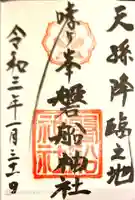 天孫降臨之地
哮ヶ峯
磐船神社
令和三年一月三十一日